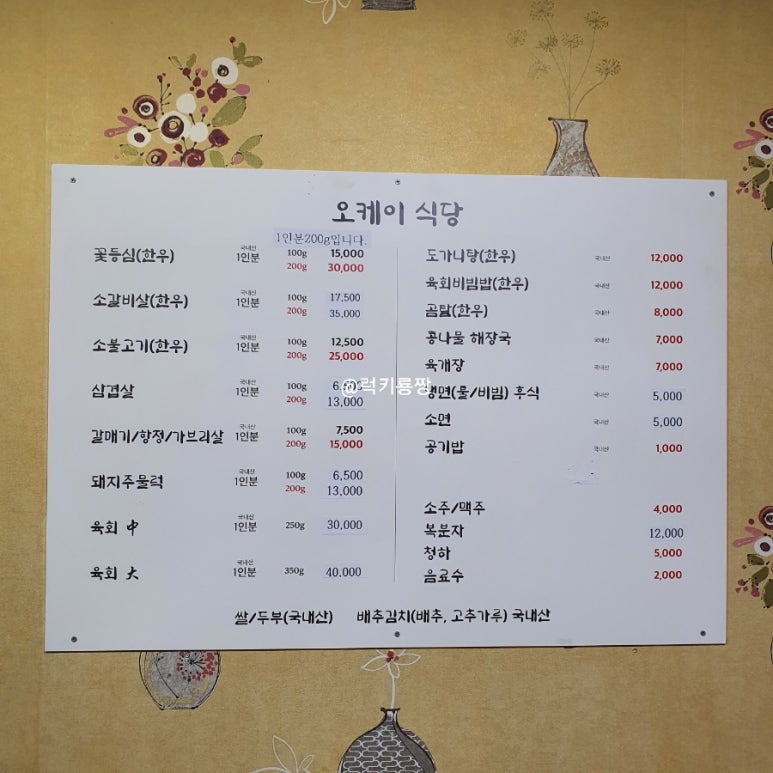 오케이 식당
1인분200g입니다.
꽃등심(한우) 국내산 1인분 100g 15,000
200g 30,000
소갈비살(한우) 국내산 1인분 100g 17,500
200g 35,000
소불고기(한우) 국내산 1인분 100g 12,500
200g 25,000
삼겹살 국내산 1인분 100g
200g 13,000
갈매기/항정/가브리살 국내산 1인분 100g 7,500
200g 15,000
돼지주물럭 국내산 1인분 100g 6,500
200g 13,000
육회 中 국내산 1인분 250g 30,000
육회 大 국내산 1인분 350g 40,000
도가니탕(한우) 국내산 12,000
육회비빔밥(한우) 국내산 12,000
곰탕(한우) 국내산 8,000
콩나물 해장국 국내산 7,000
육개장 국내산 7,000
냉면(물/비빔) 후식 국내산 5,000
소면 국내산 5,000
공기밥 국내산 1,000
소주/맥주 4,000
복분자 12,000
청하 5,000
음료수 2,000
쌀/두부(국내산) 배추김치(배추, 고추가루) 국내산
@럭키룡짱